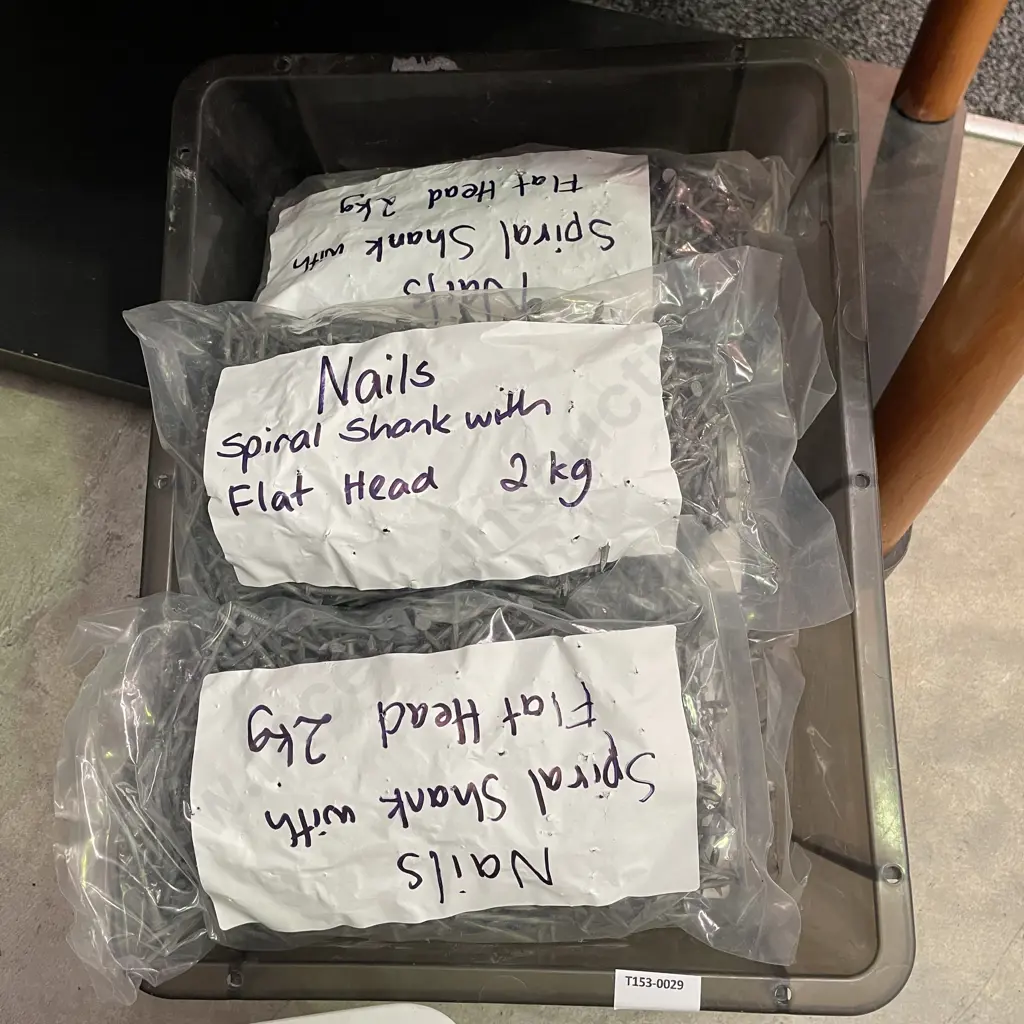 Flat Head 2kg
Spiral Shank with
Nails
Spiral Shank with
Flat Head 2 kg
Nails
Spiral Shank with
Flat Head 2kg
T153-0029